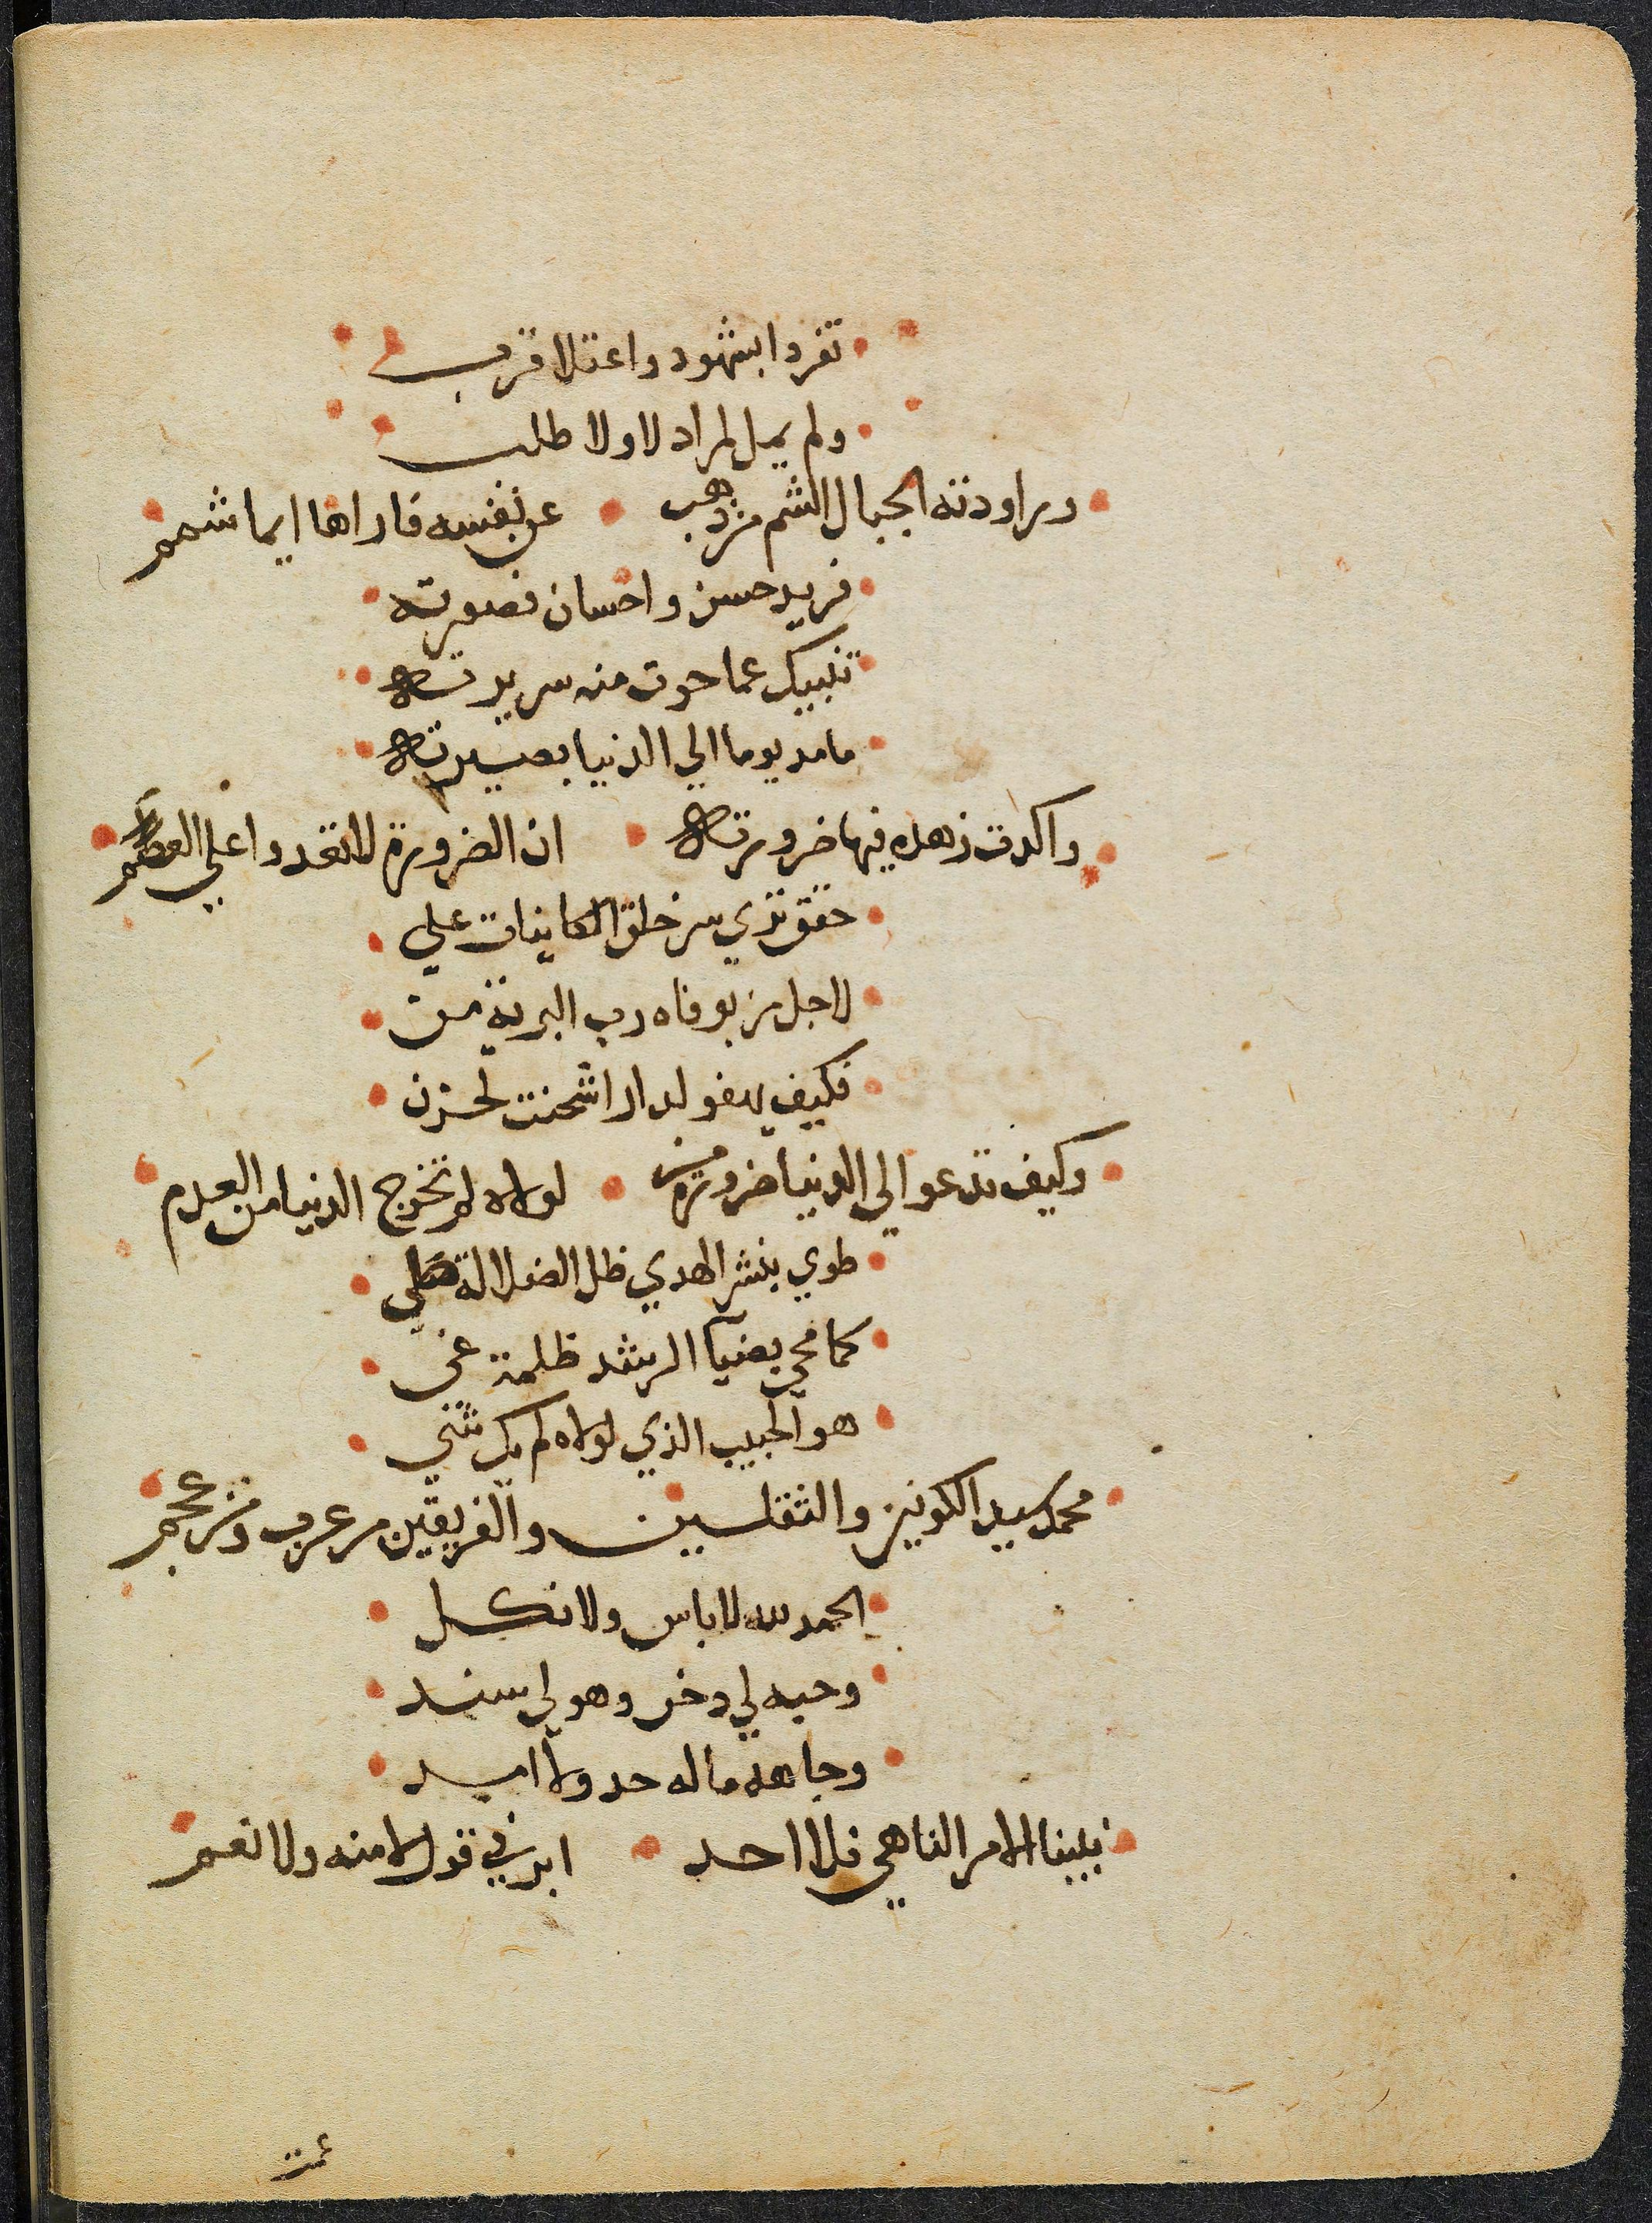 تفردا بشهود واعتلا قرب
ولم يمل لمراد لا ولا طلب
وراودته الجبال الشم من ذهب عن نفسه فاراها ايما شمم
فريد حسن واحسان فصورته
تنبيك عما حوت منه سريرته
ما مد يوما الي الدنيا بصيرته
واكدت زهده فيها ضرورته ان الضرورة لا تعدوا علي العصم
حقق تري سر خلق الكاينات علي
لاجل من بوفاه رب البرية من
فكيف يهفو لدار اشحنت لحزن
وكيف تدعو الي الدنيا ضرورة من لولاه لم تخرج الدنيا من العدم
طوي بنشر الهدي ظل الضلالة طي
كما محي بضيآ الرشد ظلمة غي
هو الحبيب الذي لولاه لم يك شي
محمد سيد الكونين والثقلين والفريقين من عرب ومن عجم
الحمد لله لا باس ولا نكل
وحبه لي دخر وهو لي سند
وجاهه ماله حد ولا امد
نبينا الامر الناهي فلا احد ابر في قول لا منه ولا نعم